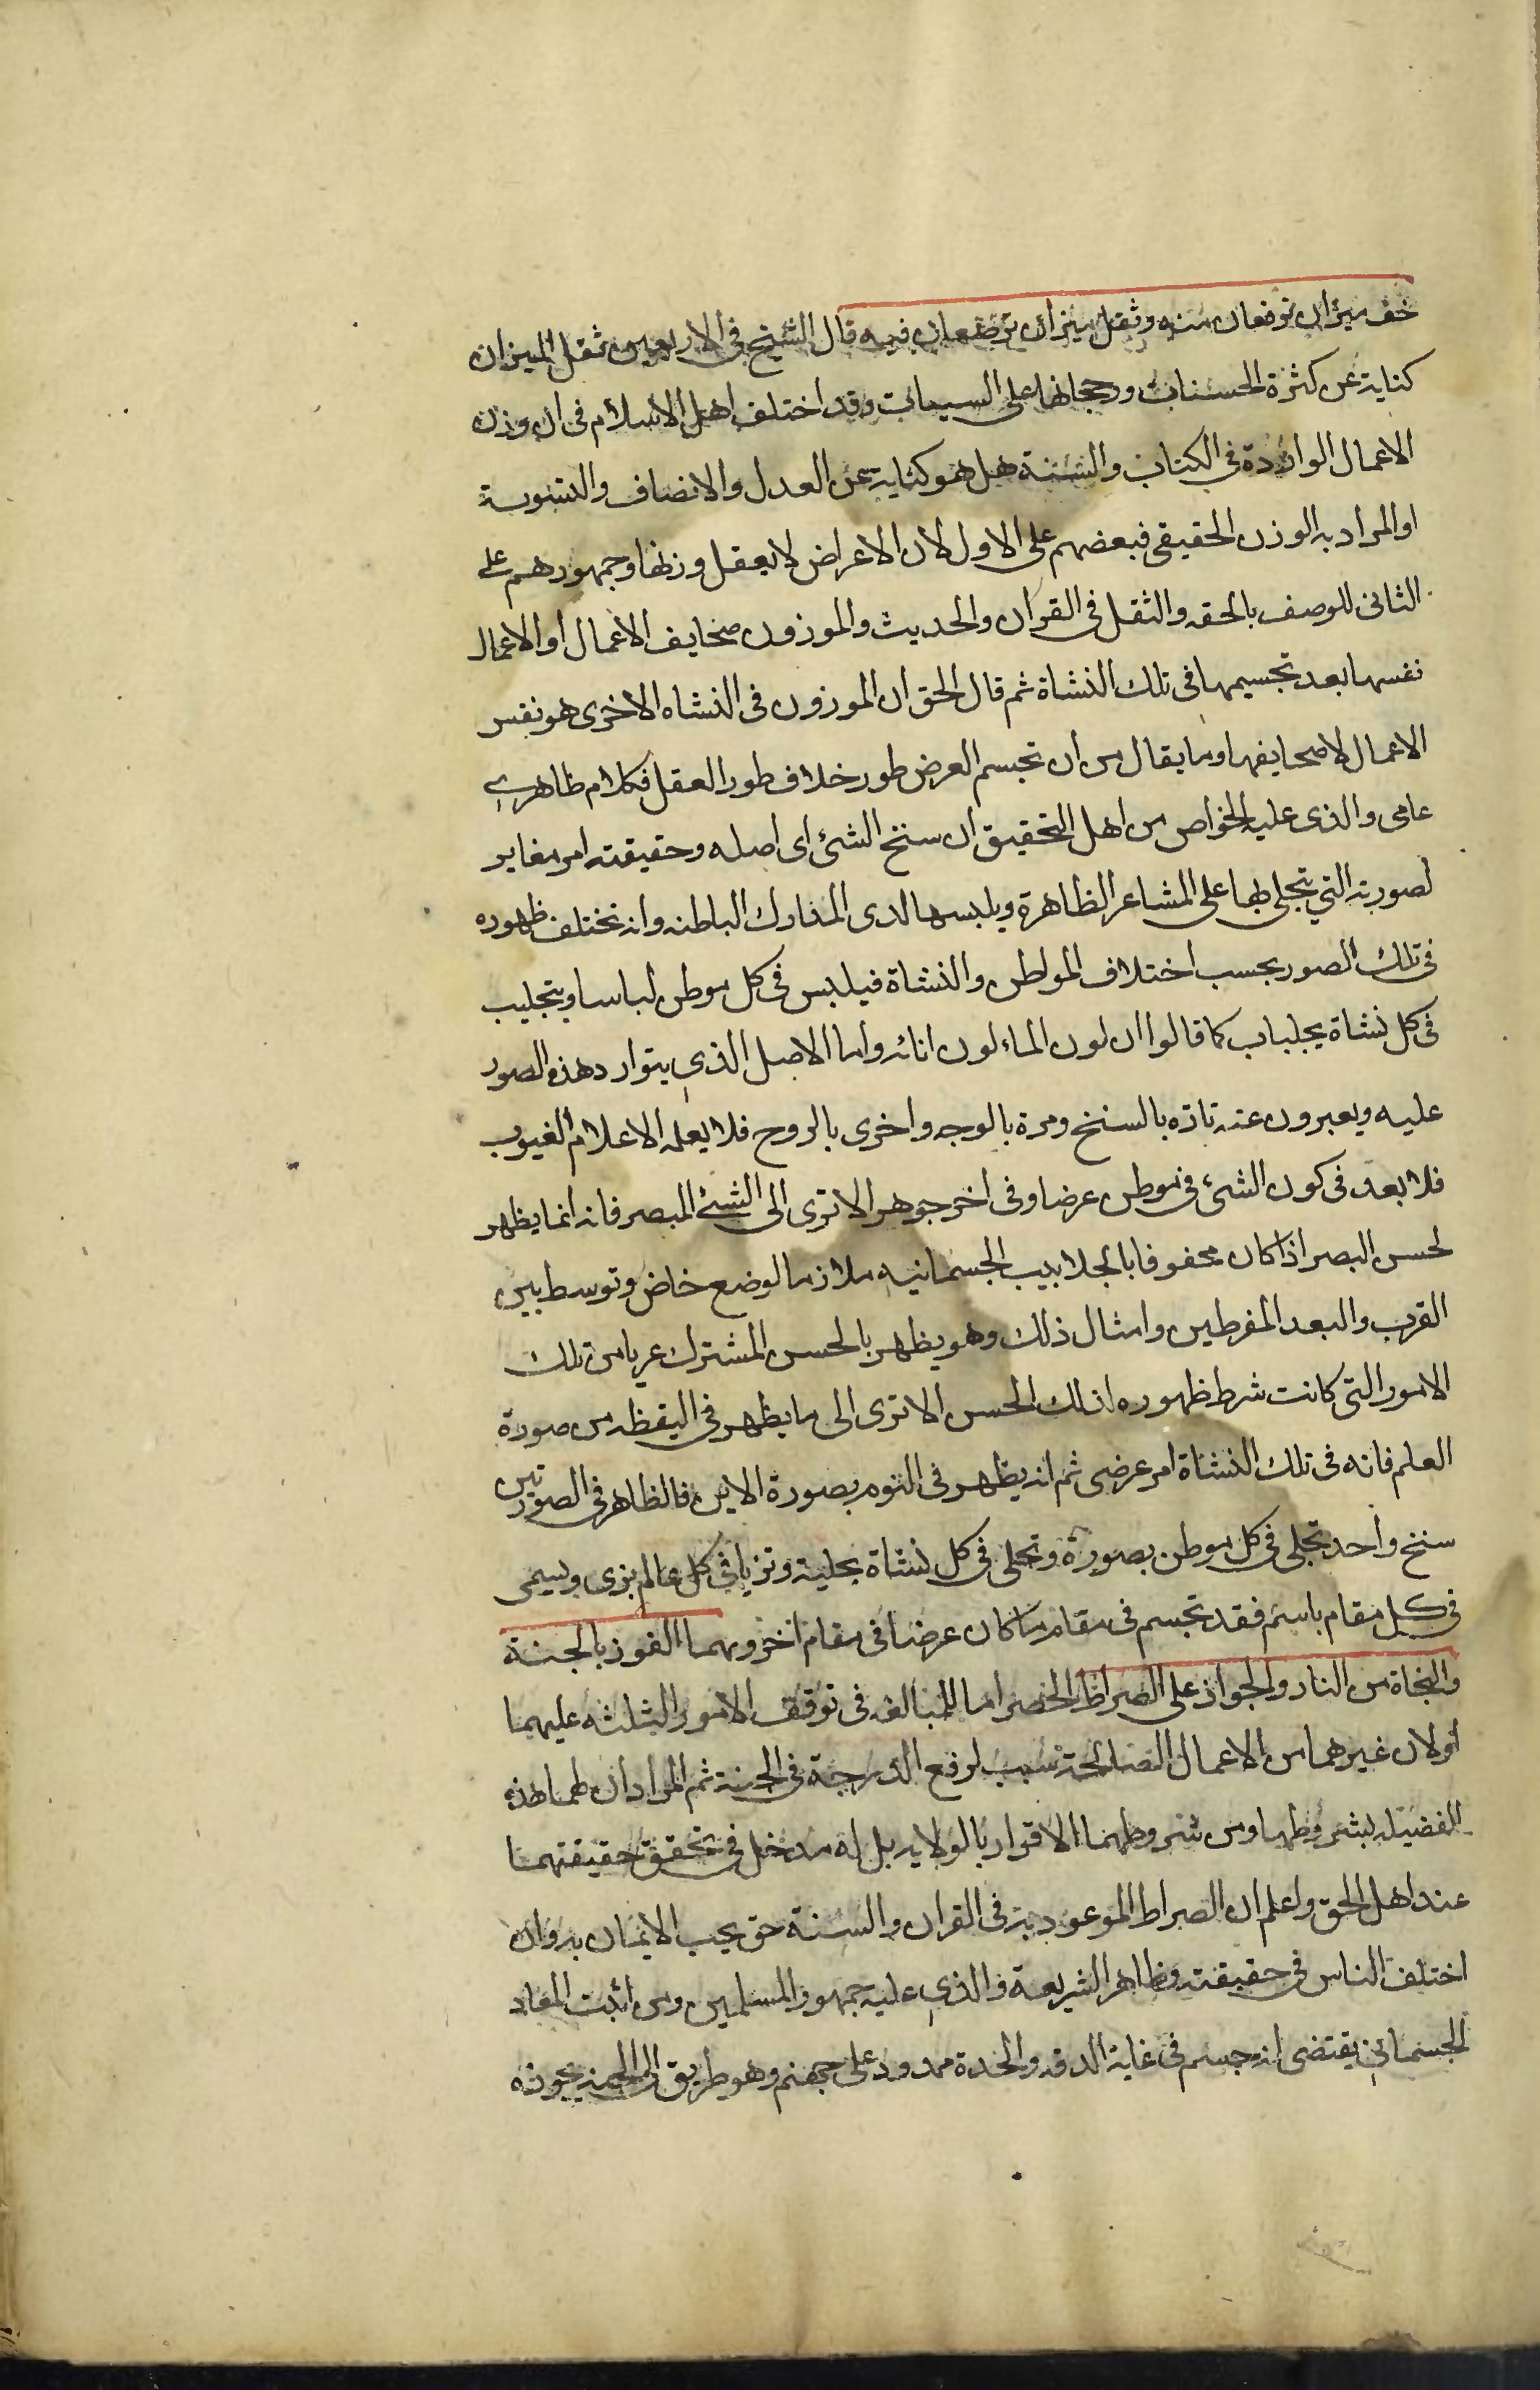 خف ميزان ترفعان منه وثقل ميزان توضعان فيه قال الشيخ في الاربعين ثقل الميزان
كناية عن كثرة الحسنات ورجحانها على السيئات وقد اختلف اهل الاسلام في ان وزن
الاعمال الواردة في الكتاب والسنة هل هو كناية عن العدل والانصاف والتسوية
او المراد به الوزن الحقيقي فبعضهم على الاول لان الاعراض لا يعقل وزنها وجمهورهم على
الثاني للوصف بالخفه والثقل في القرآن والحديث والموزون صحايف الاعمال او الاعمال
نفسها بعد تجسيمها في تلك النشاة ثم قال الحق ان الموزون في النشاه الاخرى هو نفس
الاعمال لا صحايفها وما يقال من ان تجسم العرض طور خلاف طور العقل فكلام ظاهري
عامي والذي عليه الخواص من اهل التحقيق ان سنخ الشئ اى اصله وحقيقته امر مغاير
لصورته التي يتجلى بها على المشاعر الظاهرة ويلبسها لدى المدارك الباطنه وانه تختلف ظهوره
في تلك الصور بحسب اختلاف المواطن والنشاة فيلبس في كل موطن لباسا ويتجلبب
في كل نشاة بجلباب كما قالوا ان لون الماء لون انائه واما الاصل الذي يتوارد هذه الصور
عليه ويعبرون عنه تارة بالسنخ ومرة بالوجه واخرى بالروح فلا يعلمه الا علام الغيوب
فلا بعد في كون الشئ في موطن عرضا وفي اخر جوهر الا ترى الى الشئ المبصر فانه انما يظهر
لحس البصر اذا كان محفوفا بالجلابيب الجسمانيه ملازما لوضع خاص وتوسط بين
القرب والبعد المفرطين وامثال ذلك وهو يظهر بالحس المشترك عريا من تلك
الامور التي كانت شرط ظهوره لذلك الحس الا ترى الى ما يظهر في اليقظه من صورة
العلم فانه في تلك النشاة امر عرضي ثم انه يظهر في النوم بصورة الابن فالظاهر في الصورتين
سنخ واحد تجلى في كل موطن بصورة وتحلى في كل نشاة بحلية وتزيا في كل عالم بزى ويسمى
في كل مقام باسم فقد تجسم في مقام ما كان عرضا في مقام اخر وبهما الفوز بالجنة
والنجاة من النار والجواز على الصراط الحصر اما للمبالغه في توقف الامور الثلثه عليهما
او لان غيرهما من الاعمال الصالحة سبب لرفع الدرجة في الجنة ثم المراد ان لهما هذه
الفضيله بشروطهما ومن شروطهما الاقرار بالولايه بل له مدخل في تحقق حقيقتهما
عند اهل الحق واعلم ان الصراط الموعود به في القران والسنة حق يجب الايمان به وان
اختلف الناس في حقيقته وظاهر الشريعة والذي عليه جمهور المسلمين ومن اثبت المعاد
الجسماني يقتضى انه جسم في غاية الدقه والحدة ممدود على جهنم وهو طريق الى الجنة يجوزه